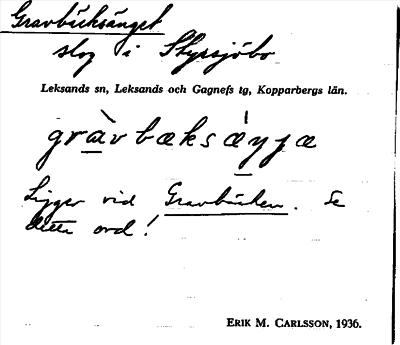 Gravbäcksänget
slog i Styrsjöbo
Leksands sn, Leksands och Gagnefs tg, Kopparbergs län.
gràvbæksǽŋjæ
Ligger vid Gravbäcken. Se
detta ord!
ERIK M. CARLSSON, 1936.